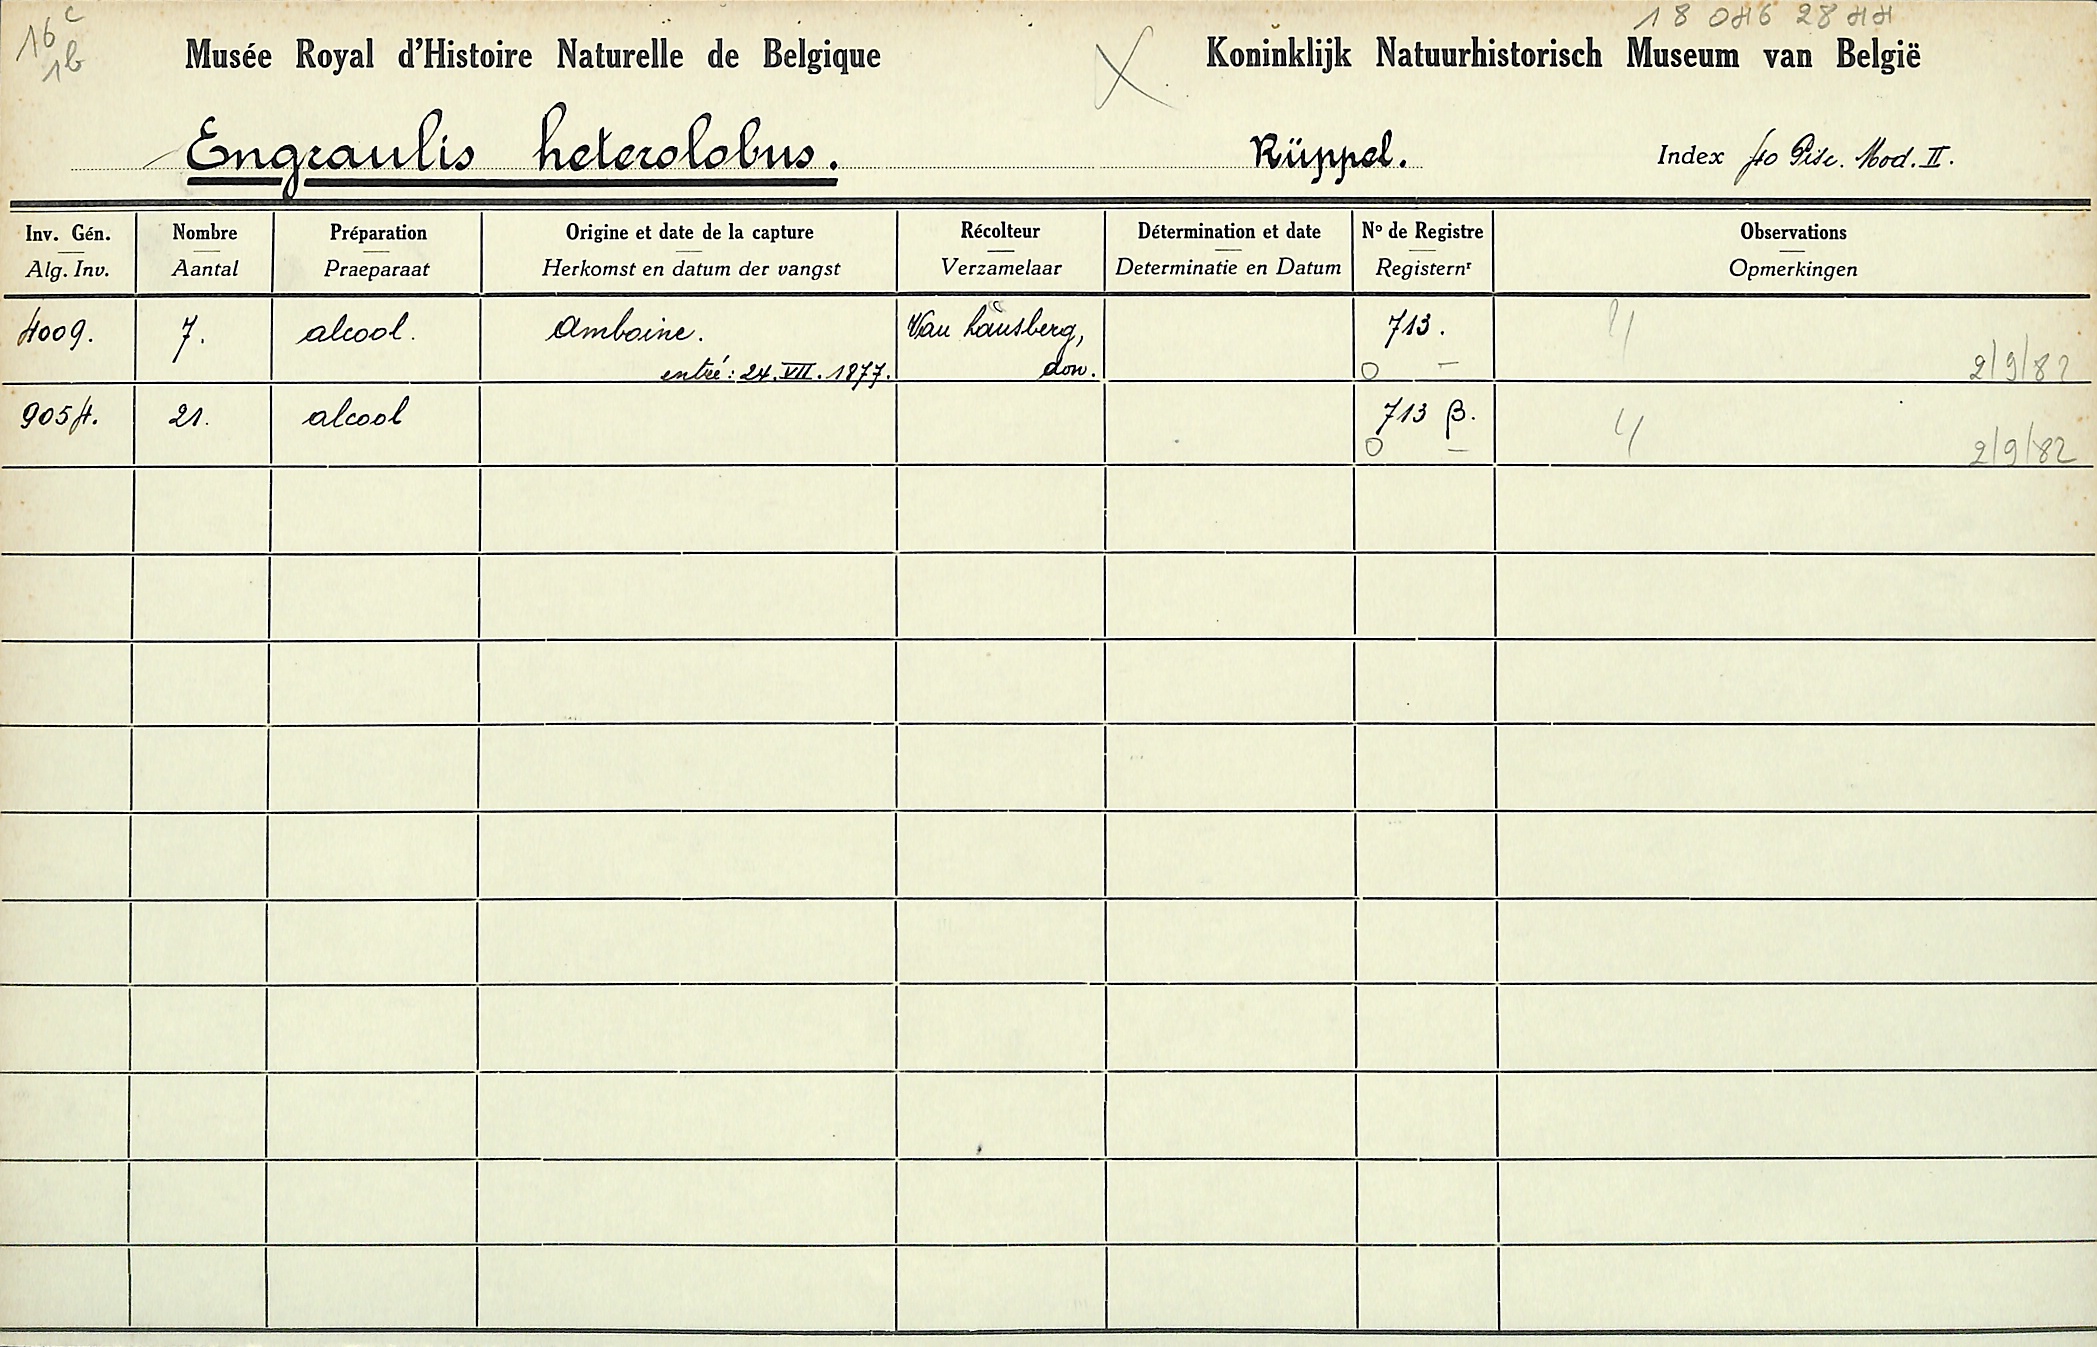 16 c
1b
18 046 28 44
Musée Royal d'Histoire Naturelle de Belgique
Koninklijk Natuurhistorisch Museum van België
X
Engraulis heterolobus.
Rüppel.
Index 40 Pisc. Mod. II.
Inv. Gén. Nombre Préparation Origine et date de la capture Récolteur Détermination et date Nº de Registre Observations
Alg. Inv. Aantal Praeparaat Herkomst en datum der vangst Verzamelaar Determinatie en Datum Registernr Opmerkingen
4009. 7. alcool. Amboine. Van Lansberg, 713.
entré: 24.VII.1877. don. O – 2/9/82
9054. 21. alcool 713 β.
O – 2/9/82